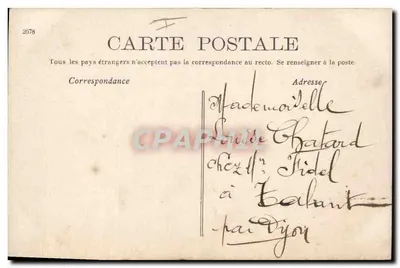 2078
CARTE POSTALE
Tous les pays étrangers n'acceptent pas la correspondance au recto. Se renseigner à la poste
Correspondance
Adresse
Mademoiselle
Louise Chatard
chez Mr Fidel
à Talant
par Dijon
CPARAMA